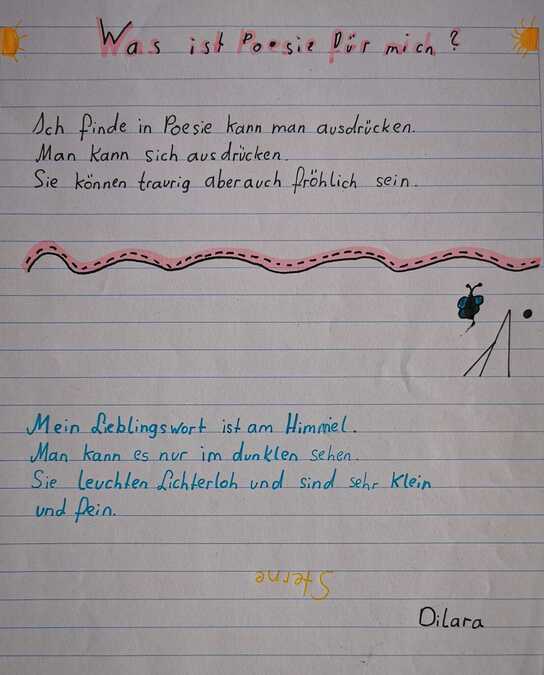 Was ist Poesie für mich?
Ich finde in Poesie kann man ausdrücken.
Man kann sich ausdrücken.
Sie können traurig aber auch fröhlich sein.
Mein Lieblingswort ist am Himmel.
Man kann es nur im dunklen sehen.
Sie leuchten Lichterloh und sind sehr klein
und fein.
Sterne
Dilara